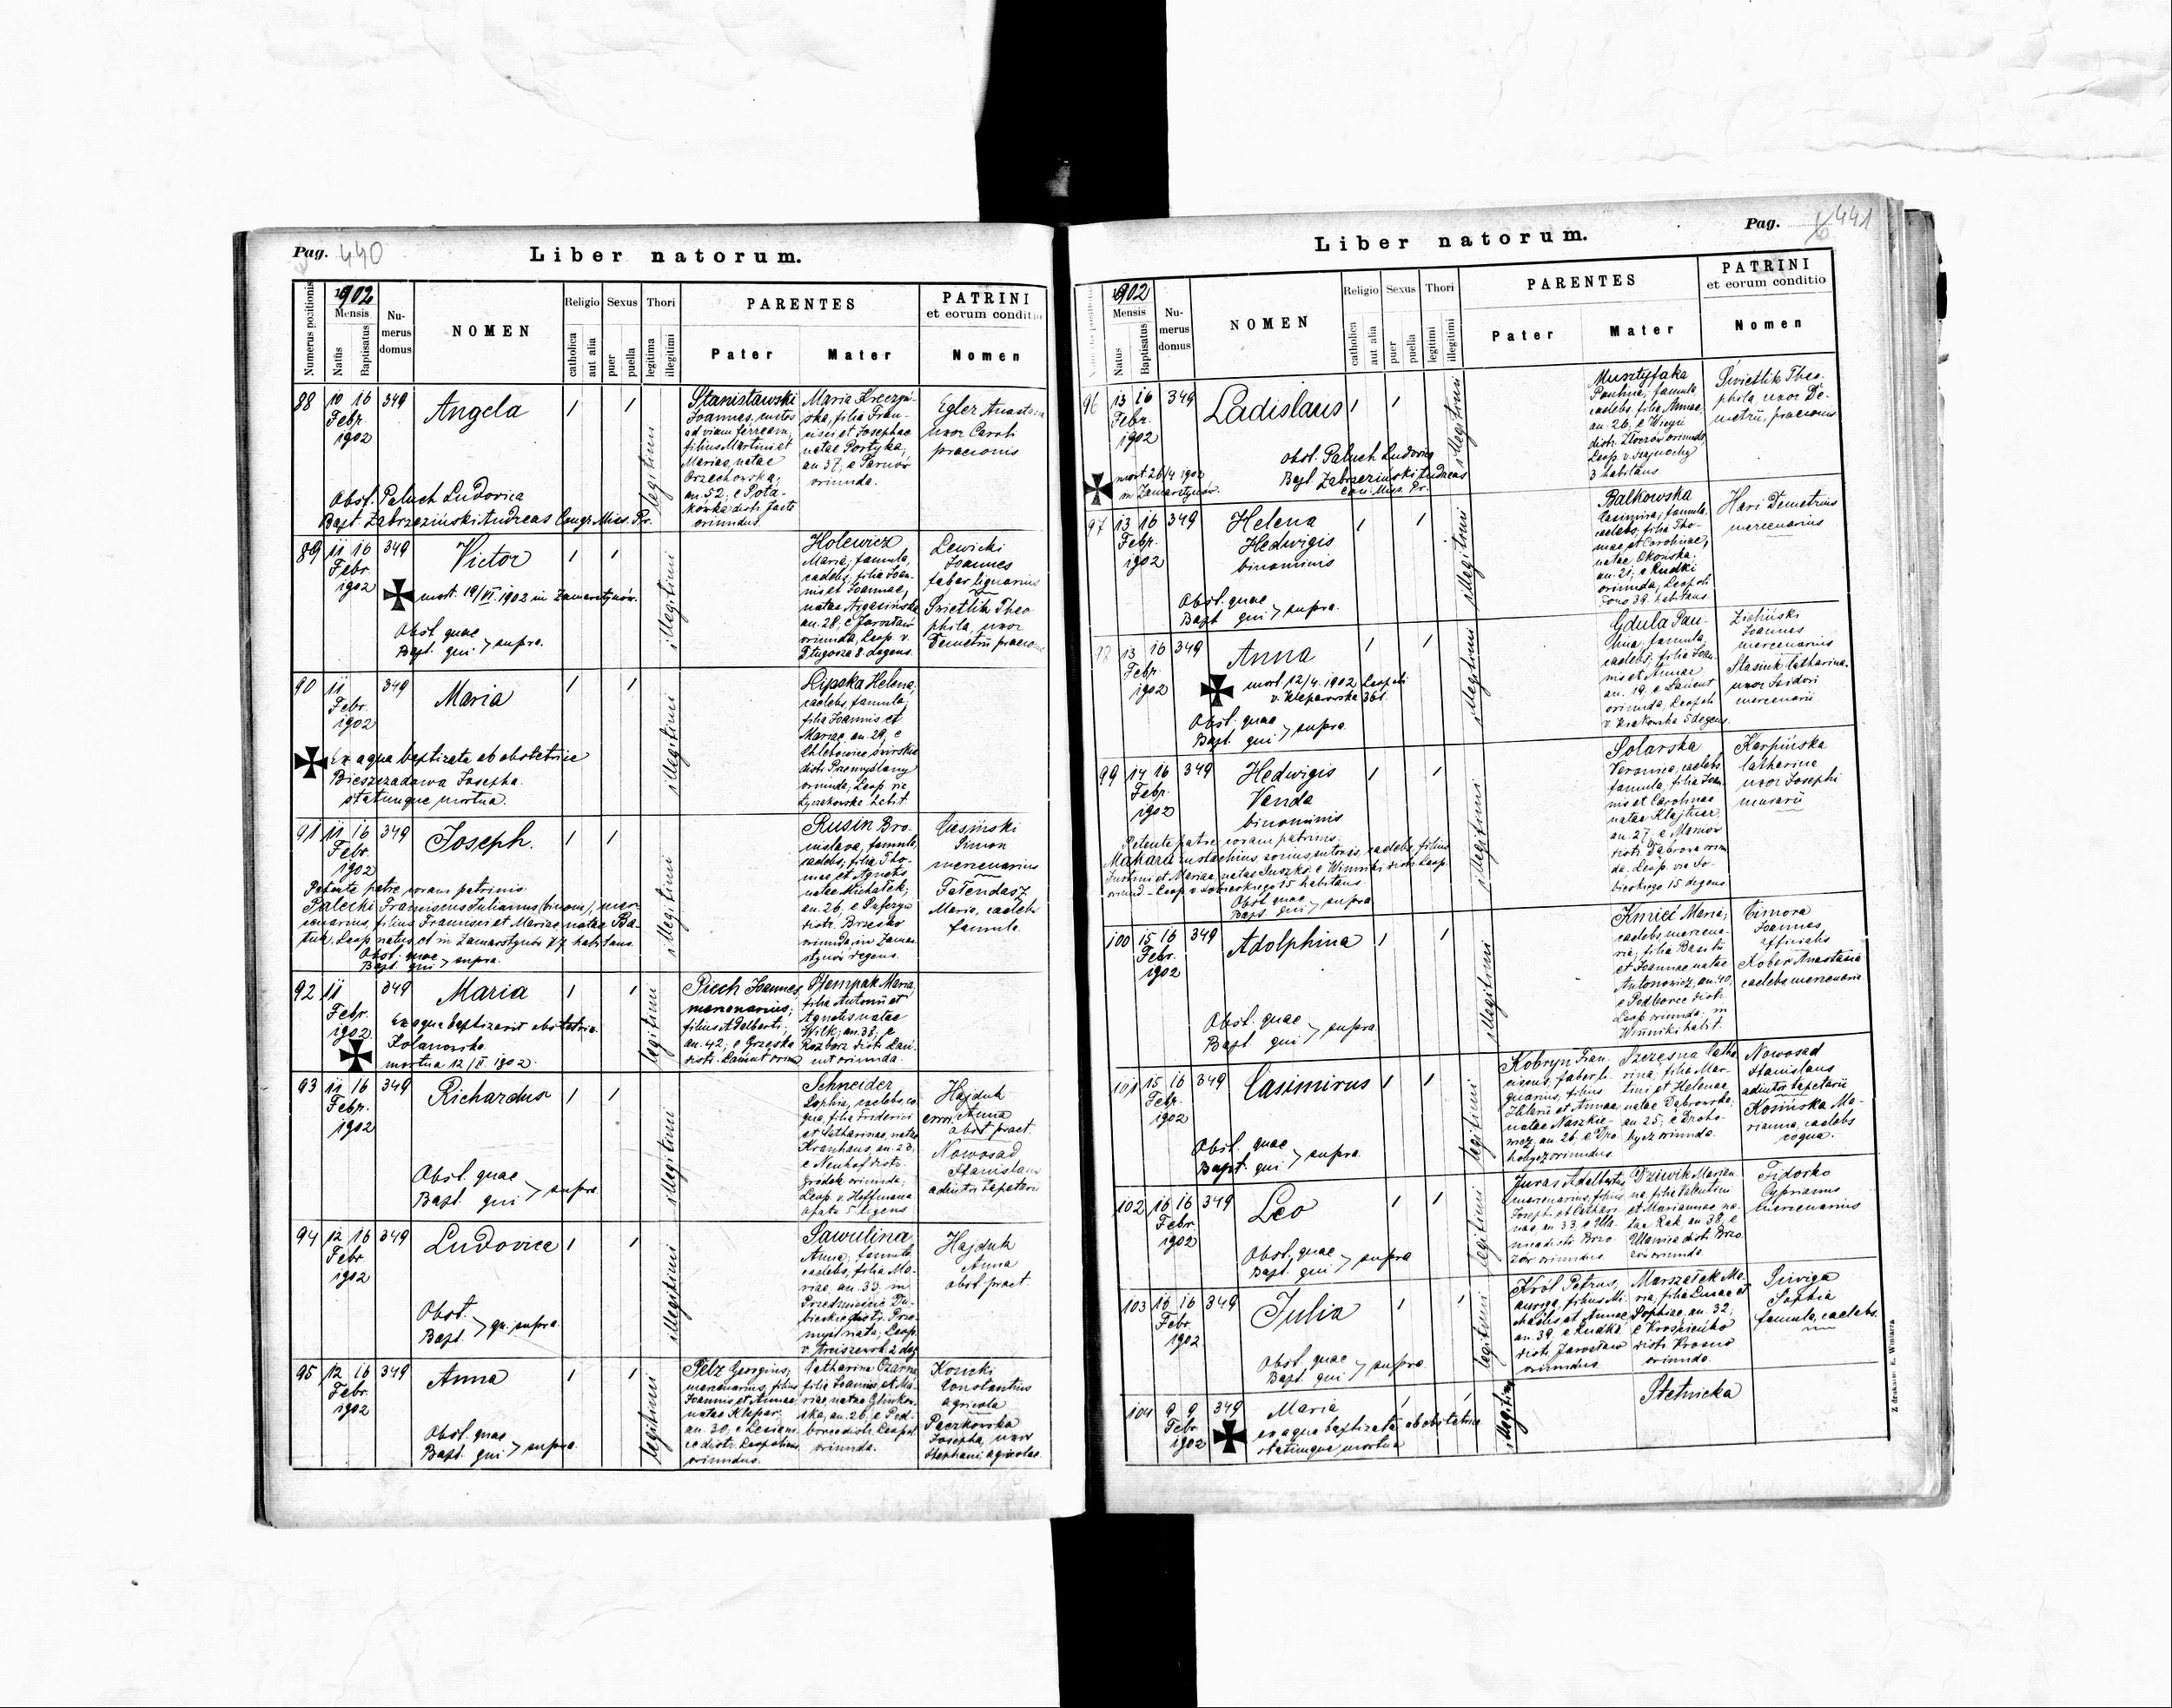 Pag. 440
Liber natorum.
Numerus positionis
1902
Mensis
Natus
Baptisatus
Numerus domus
NOMEN
Religio
catholica
aut alia
Sexus
puer
puella
Thori
legitima
illegitimi
PARENTES
Pater
Mater
PATRINI
et eorum conditio
Nomen
88
10 16
Febr.
1902
349
Angela
1
1
legitimi
Stanisławski
Joannes, custos
ad viam ferream,
filius Martini et
Mariae, natae
Orzechowska,
an. 52,
oriundus
filia Fran-
cisci et Josephae
natae Portyka,
an 37, e Tarnów
oriunda.
Egler Anastasia
uxor Caroli
praeconis
Obst. Paluch Ludovica
Bapt. Zabrzeziński Andreas Congr. Miss. Pr.
89
11 16
Febr.
1902
349
Victor
1
1
mort. 19/VI. 1902 in Zamarstynów.
Obst. quae
Bapt. qui > supra.
illegitimi
Holewicz
Maria, famula,
caelebs, filia Joan-
nis et Joannae,
an. 28, e Jarosław
oriunda, Leop. v.
Długosza 8. degens.
Lewicki
Joannes
faber lignarius
Świetlik Theo
phila, uxor
Demetrii
90
11
Febr.
1902
349
Maria
1
1
Ex aqua baptizata ab obstetrice
Bieszczadowa Josepha.
statimque mortua.
illegitimi
Lipska Helena,
caelebs, famula,
filia Joannis et
Mariae, an. 29, e
distr. Przemyślany
oriunda, Leop.
91
11 16
Febr.
1902
349
Joseph.
1
1
Petente patre coram patrinis
Palecki Franciscus Julianus (binom), mer-
cenarius, filius Francisci et Mariae natae
Leop natus et in Zamarstynów 77 habitans.
Obst. quae
Bapt. qui > supra.
illegitimi
Rusin Bro-
nislava, famula,
caelebs, filia Tho-
mae et Agnetis
natae Michałek,
an. 26,
distr. Brzesko
oriunda, in Zamar-
stynów degens.
Ciesiński
Simon
mercenarius
Maria, caelebs
famula.
92
11
Febr.
1902
349
Maria
1
1
Ex aqua baptizavit obstetrix
mortua 12/II 1902.
legitimi
Piech Joannes,
mercenarius,
filius Adalberti,
an. 42, e Grzęska
distr. Łańcut
Maria,
filia Antonii et
Agnetis natae
Wilk, an. 38, e
Rozborz distr. Łań-
cut oriunda.
93
11 16
Febr.
1902
349
Richardus
1
1
Obst. quae
Bapt. qui > supra
illegitimi
Schneider
Sophia, caelebs, co-
qua, filia Friderici
et Catharinae, natae
Kranhaus, an. 23,
e Neuhof distr.
Gródek oriunda,
Leop. v. Hoffmana
degens
Hajduk
Anna
obst pract.
Nowosad
Stanislaus
adiutor tapetarii
94
12 16
Febr.
1902
349
Ludovica
1
1
Obst.
Bapt. > qu. supra.
illegitimi
Sawulina
Anna, famula,
caelebs, filia Ma-
riae, an. 33, in
Przedmieście Du-
bieckie distr. Prze-
myśl nata, Leop.
Hajduk
Anna
obst. pract.
95
12 16
Febr
1902
349
Anna
1
1
Obst. quae
Bapt. qui > supra.
legitimi
Pelz Georgius,
mercenarius, filius
Joannis et Annae
an. 30,
oriundus.
Catharina Czarna
filia Joannis et Ma-
riae natae
an. 26, e Pod-
borce distr. Leopol
oriunda.
Kosicki
Constantinus
agricola
Paczkowska
Josepha, uxor
Stephani, agricolae.
Pag. 441
Liber natorum.
1902
Mensis
Natus
Baptisatus
Numerus domus
NOMEN
Religio
catholica
aut alia
Sexus
puer
puella
Thori
legitimi
illegitimi
PARENTES
Pater
Mater
PATRINI
et eorum conditio
Nomen
96
13 16
Febr.
1902
349
Ladislaus
1
1
mort. 26/4 1902
in Zamarstynów.
Obst. Paluch Ludovica
Bapt. Zabrzeziński Andreas
Con. Miss. Pr.
illegitimi
Musztyfaka
Paulina, famula,
caelebs, filia Annae,
an. 26,
distr. Złoczów oriunda
Leop. v. Szajnochy
3 habitans.
Świetlik Theo-
phila, uxor De-
metrii, praeconis
97
13 16
Febr.
1902
349
Helena
Hedwigis
binominis
1
1
Obst. quae
Bapt. qui > supra.
illegitimi
Bałkowska
Casimira, famula,
caelebs, filia Tho-
mae et Carolinae,
natae Okońska,
an. 21, e Rudki
oriunda, Leopoli
39. habitans.
Hari Demetrius
mercenarius
13 16
Febr
1902
349
Anna
1
1
mort. 12/4. 1902 Leopoli
v. Kleparowska
Obst. quae
Bapt. qui > supra.
illegitimi
Gdula Pau-
lina, famula,
caelebs, filia Joan-
nis et Annae
an. 19, e Łańcut
oriunda, Leopoli
v Krakowska 5 degens
Zieliński
Joannes
mercenarius
Stasiuk Catharina,
uxor Isidori
mercenarii
99
14 16
Febr.
1902
349
Hedwigis
Vanda
binominis
1
1
Petente patre coram patrinis:
Eustachius, caelebs, filius
Justini et Mariae, natae Juszko, e Winniki distr. Leop.
oriund. Leop. v. Sobieskiego 15 habitans.
Obst quae
Bapt. qui > supra
illegitimi
Solarska
Veronica, caelebs
famula, filia Joan-
nis et Carolinae
natae Klajtner,
an. 27,
distr. Dąbrowa oriun-
da, Leop. via So-
bieskiego 15 degens
Karpińska
Catharina
uxor Josephi
murarii
100
15 16
Febr.
1902
349
Adolphina
1
1
Obst. quae
Bapt. qui > supra.
illegitimi
Kmieć Maria,
caelebs mercena-
ria, filia Basilii
et Joannae natae
Antonowicz, an. 40,
e Podborce distr.
Leop oriunda, in
Winniki habit.
Cimora
Joannes
officialis
Kober Anastasia
caelebs mercenaria
101
15 16
Febr.
1902
349
Casimirus
1
1
Obst. quae
Bapt. qui > supra.
legitimi
Kobryn Fran-
ciscus, faber li-
gnarius, filius
Hilarii et Annae
natae Naszkie-
wicz, an. 26, e Dro-
hobycz oriundus
Szczęsna Catha-
rina, filia Mar-
tini et Helenae,
natae Dąbrowska,
an. 25, e Droho-
bycz oriunda.
Nowosad
Stanislaus
adiutor tapetarii
Kosińska Ma-
rianna, caelebs
coqua.
102
16 16
Febr.
1902
349
Leo
1
1
Obst. quae
Bapt. qui > supra
legitimi
Juras Adalbertus
mercenarius, filius
Josephi et Cathari-
nae, an 33, e Ula-
nica distr. Brzo-
zów oriundus
Dziwik Marian-
na, filia Valentini
et Mariannae na-
tae Rak, an 38, e
Ulanica distr. Brzo
zów oriunda
Fidorko
Cyprianus
mercenarius
103
16 16
Febr.
1902
349
Julia
1
1
Obst. quae
Bapt. qui > supra
legitimi
Król Petrus,
auriga, filius Mi-
chaelis et Annae
an. 39, e Rudka
distr. Jarosław
oriundus
Marszałek Ma-
ria, filia Lucae et
Sophiae, an. 32,
e Krościenko
distr. Krosno
oriunda.
Siwiga
Sophia
famula, caelebs.
104
9 9
Febr
1902
349
Maria
1
1
ex aqua baptizata ab obstetrice
statimque mortua
illegitimi
Stetnicka
Z drukarni E. Winiarza